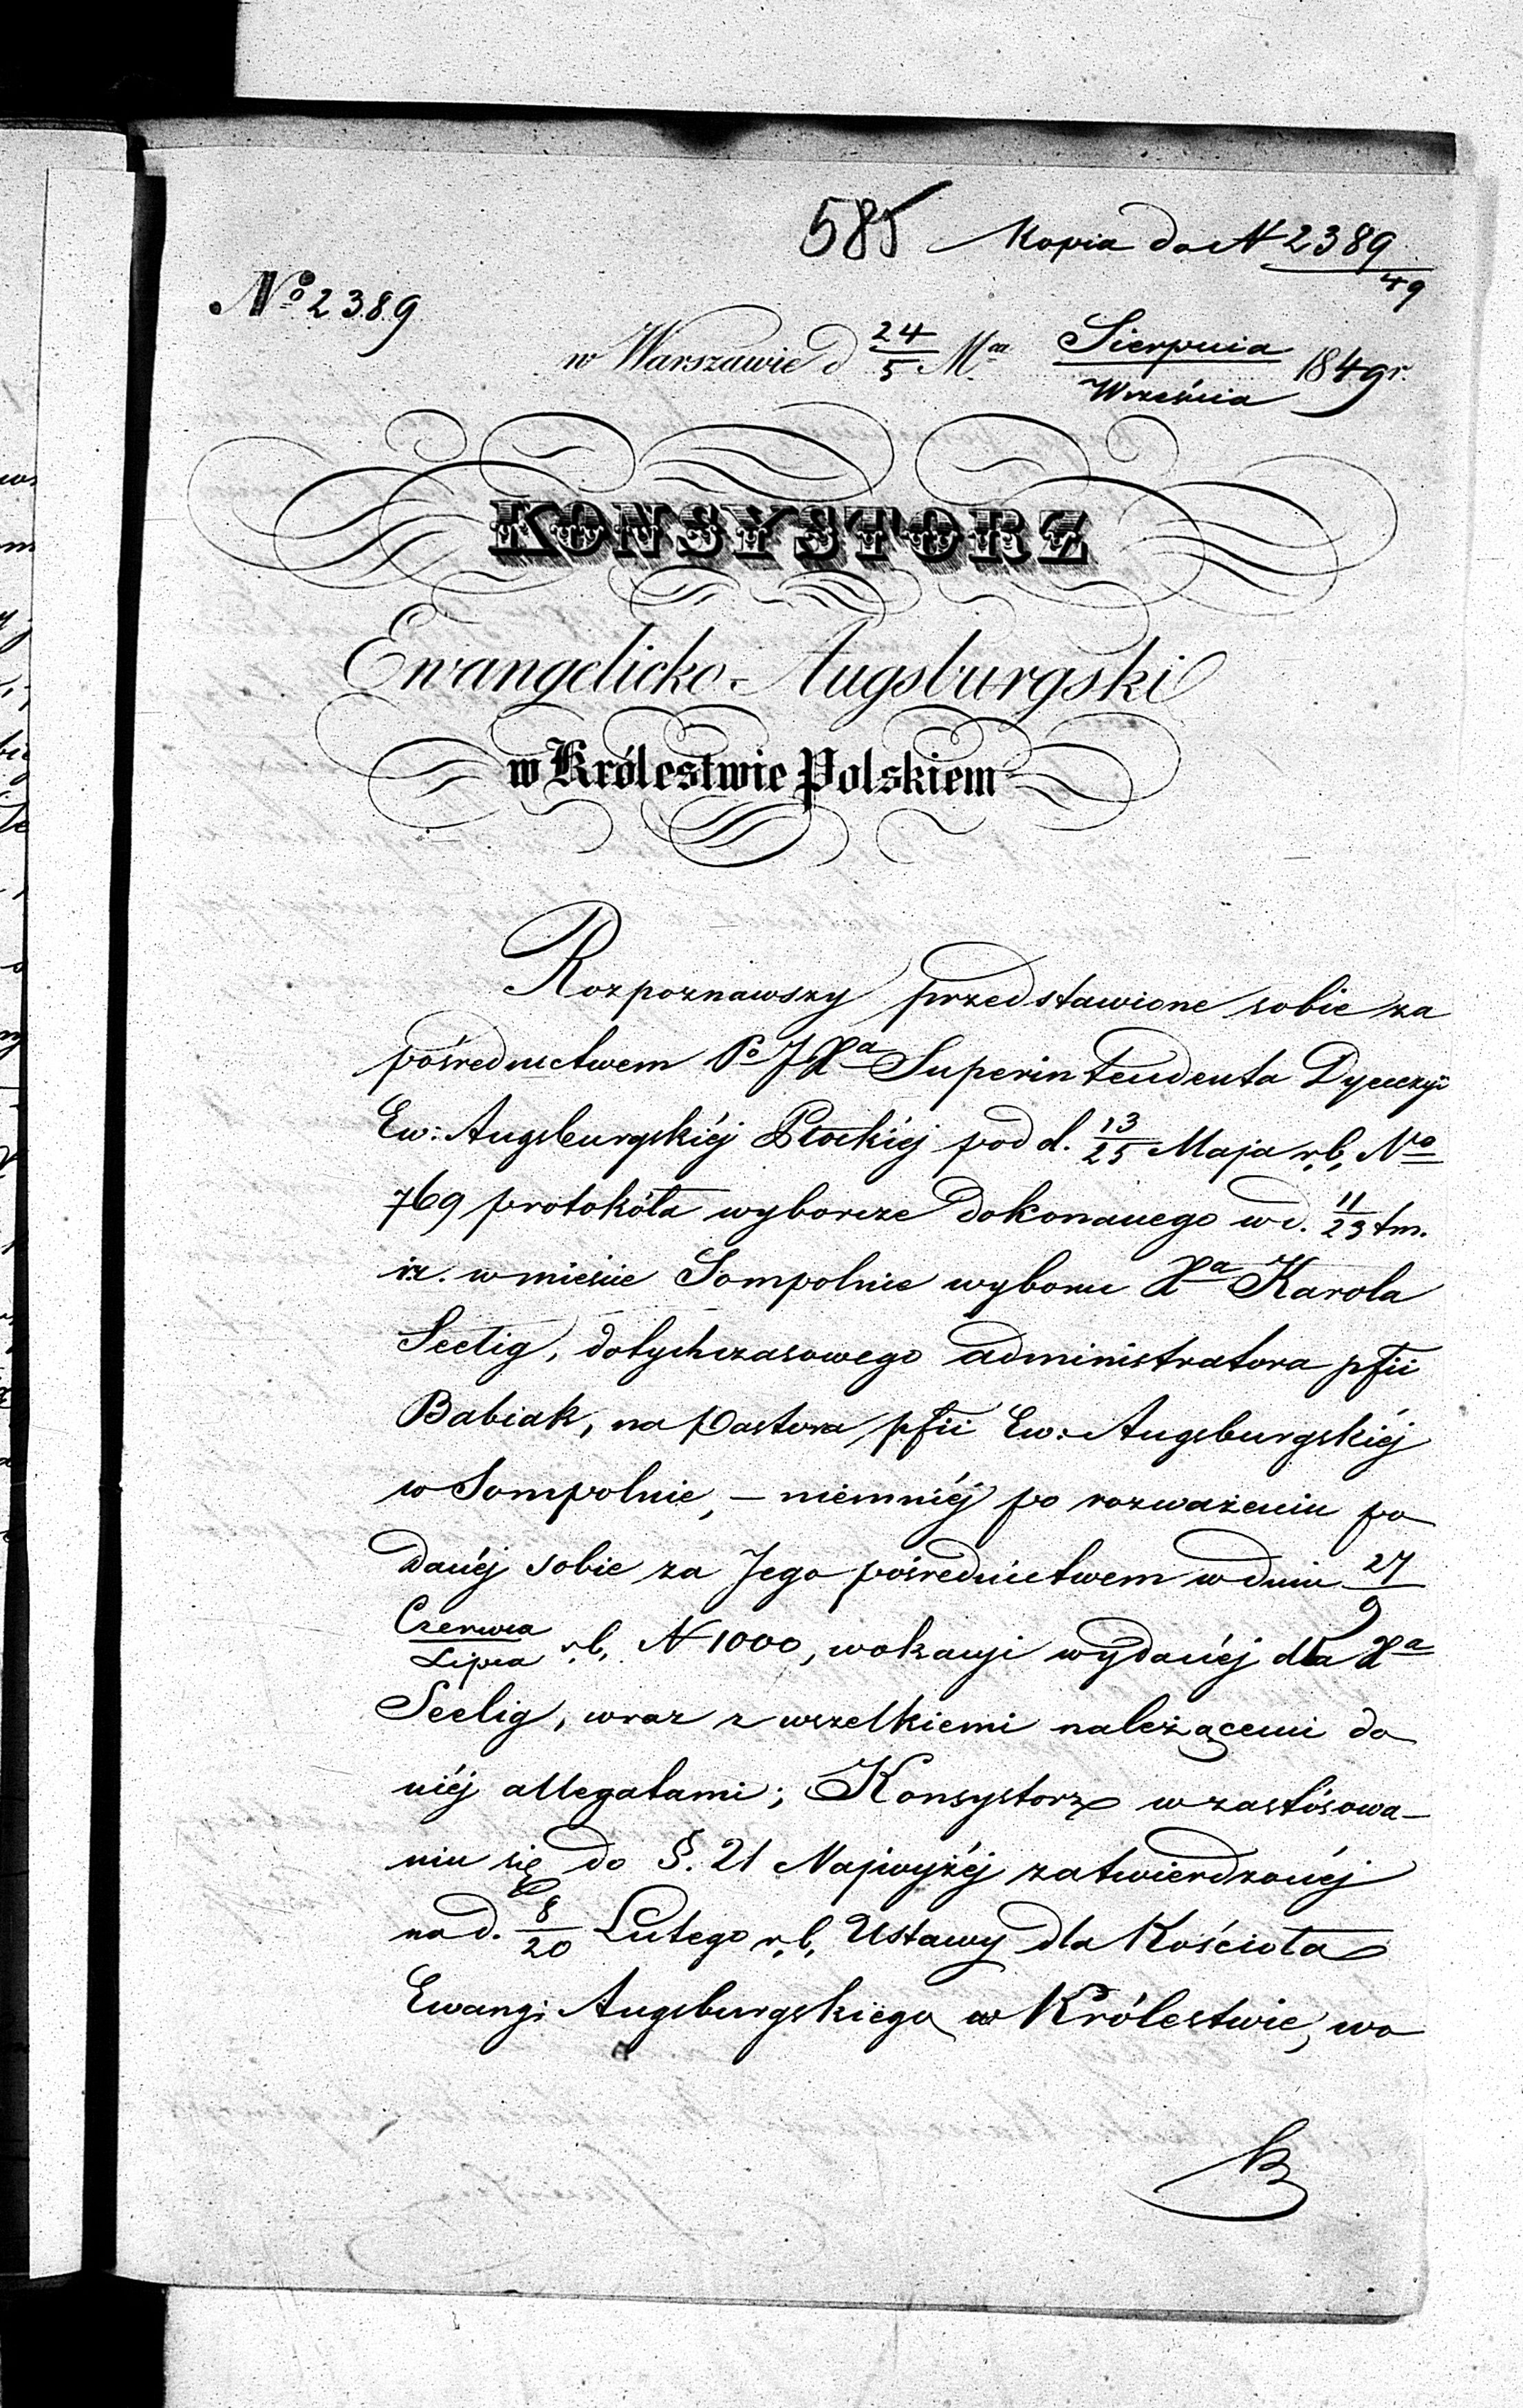 585 Kopia do N 2389/49
No 2389
w Warszawie d 24/5 Mca Sierpnia/Września 1849 r.
KONSYSTORZ
Ewangelicko-Augsburgski
w Królestwie Polskiem
Rozpoznawszy przedstawione sobie za
pośrednictwem Po J Xa Superintendenta Dyecezyi
Ew: Augsburgskiéj Płockiéj pod d. 13/25 Maja r,b, No
769 protokóła wyborcze dokonanego w d. 11/23 tm.
ir. w mieście Sompolnie wyboru Xa Karola
Seelig, dotychczasowego administratora pfii
Babiak, na Pastora pfii Ew: Augsburgskiéj
w Sompolnie, – niemniéj po rozważeniu po
danéj sobie za Jego pośrednictwem w dniu 27/9
Czerwca/Lipca r,b, N 1000, wokacyi wydanéj dla Xa
Seelig, wraz z wszelkiemi należącemi do
niéj allegatami; Konsystorz w zastósowa–
niu się do §. 21 Najwyżéj zatwierdzonéj
na d. 8/20 Lutego r,b, Ustawy dla Kościoła
Ewang: Augsburgskiego w Królestwie, wo